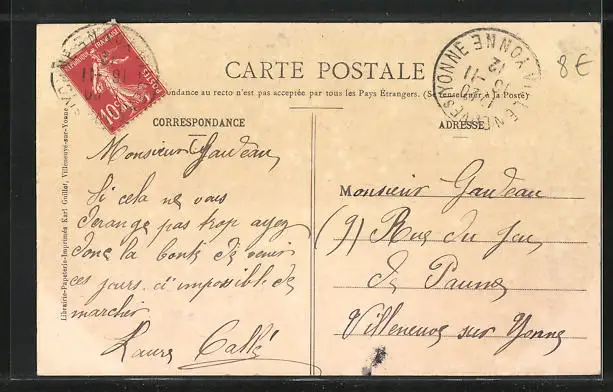 CARTE POSTALE
8€
La Correspondance au recto n'est pas acceptée par tous les Pays Étrangers. (Se renseigner à la Poste)
CORRESPONDANCE
ADRESSE
Monsieur Gaudeau,
Si cela ne vous
dérange pas trop ayez
donc la bonté de venir
ces jours-ci impossible de
marcher
Laure Callé
Monsieur Gaudeau
(9) Rue du Jeu
de Paume
Villeneuve sur Yonne
Librairie-Papeterie-Imprimés Karl Guillot, Villeneuve-sur-Yonne
10c
POSTES
VILLENEUVE S YONNE YONNE
12